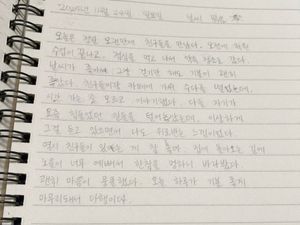 2024년 11월 24일 일요일 날씨 맑음
오늘은 정말 오랜만에 친구들을 만났다. 오전에 학원
수업이 끝나고, 점심을 먹고 나서 약속 장소로 갔다.
날씨가 좋아서 그냥 걷기만 해도 기분이 괜히
좋았다. 친구들이랑 카페에 가서 수다를 떨었는데,
시간 가는 줄 모르고 이야기했다. 다들 각자가
요즘 힘들었던 일들을 털어놓았는데, 이상하게
그걸 듣고 있으면서 나도 위로받는 느낌이었다.
역시 친구들이 있다는 게 참 좋다. 집에 돌아오는 길에
노을이 너무 예뻐서 한참을 멍하니 바라봤다.
괜히 마음이 뭉클했다. 오늘 하루가 기분 좋게
마무리돼서 다행이다.